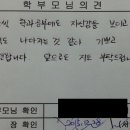 학 부 모 님 의 견
학과공부에도 자신감을 보이고
도 나아지는 것 같아 기쁘고
합니다. 앞으로도 지도 부탁드립니
모님 확인
장 확인